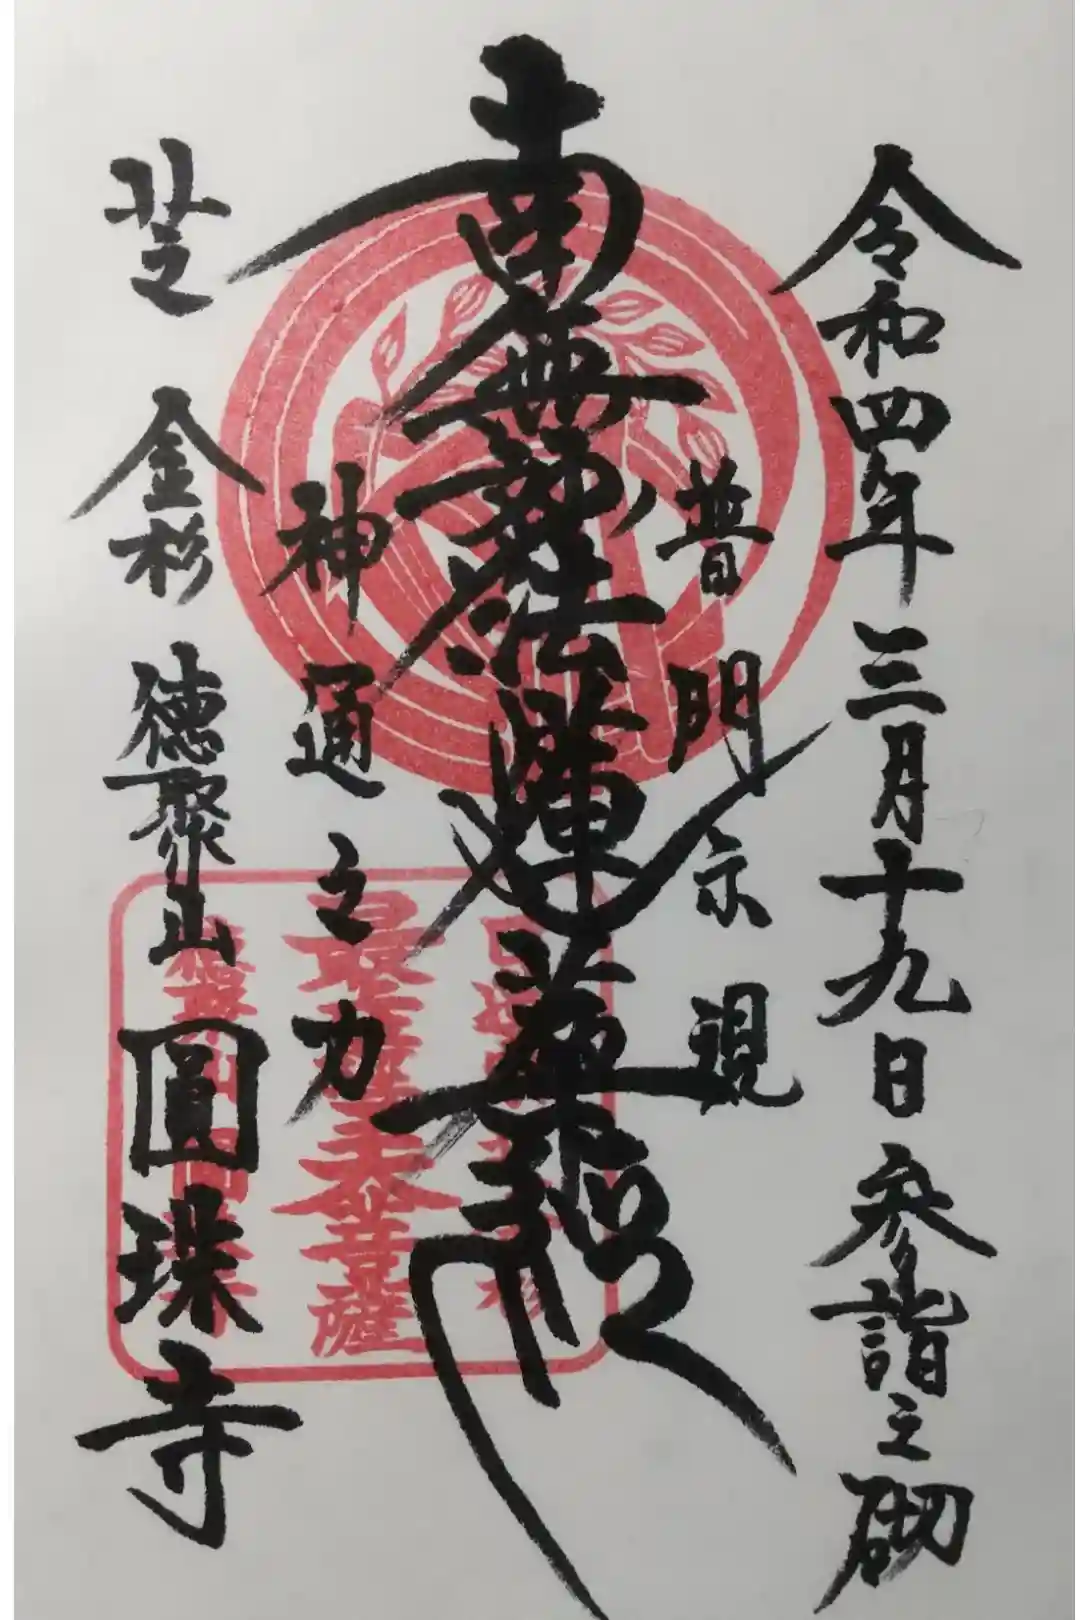 令和四年三月十九日参詣之砌
普門示現
南無妙法蓮華經
神通之力
芝金杉徳聚山圓珠寺
最上位
大菩薩